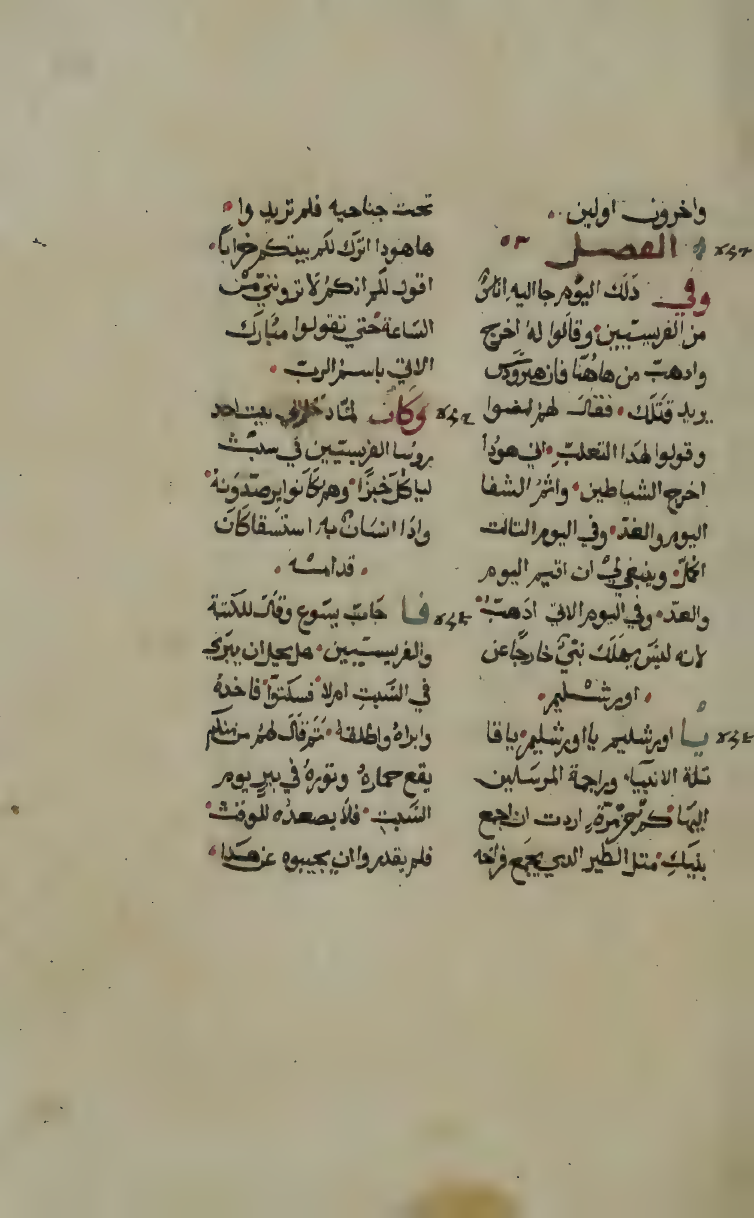 واخرون اولين
الفصل ٥٣
وفي ذلك اليوم جا اليه اناسٌ
من الفريسيين وقالوا له اخرج
واذهب من هاهنا فان هيرودس
يريد قتلك فقال لهم امضوا
وقولوا لهذا الثعلب اني هودا
اخرج الشياطين واتم الشفا
اليوم والغد وفي اليوم الثالث
اكمل وينبغي لي ان اقيم اليوم
والغد وفي اليوم الاتي اذهب
لانه ليس يهلك نبي خارجا عن
اورشليم
يا اورشليم يا اورشليم يا قا
تلة الانبيا وراجمة المرسلين
اليها كم من مرة اردت ان اجمع
بنيك مثل الطير الدي يجمع فراخه
تحت جناحيه فلم تريدوا
ها هودا اترك لكم بيتكم خراباً
اقول لكم انكم لا ترونني من
الساعة حتي تقولوا مبارك
الاتي باسم الرب
وكان لما دخل الي بيت احد
روسا الفريسيين في سبت
لياكل خبزا وهم كانوا يرصدونه
واذا انسان به استسقا كان
قدامه
فا جاب يسوع وقال للكتبة
والفريسيين هل يحل ان يبري
في السبت ام لا فسكتوا فاخده
وابراه واطلقه ثم قال لهم من منكم
يقع حماره وثوره في بير يوم
السبت فلا يصعده للوقت
فلم يقدروا ان يجيبوه عن هدا